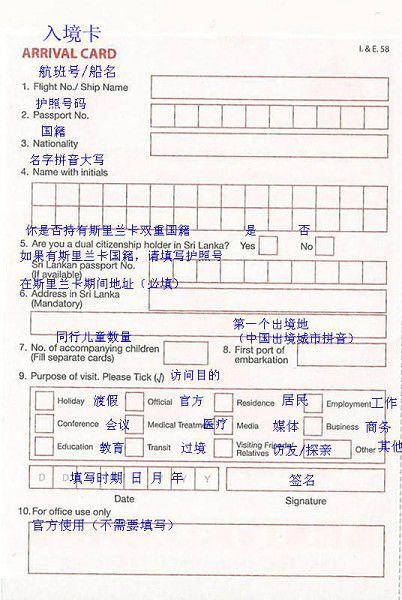 入境卡
ARRIVAL CARD I. & E. 58
航班号/船名
1. Flight No./ Ship Name
护照号码
2. Passport No.
国籍
3. Nationality
名字拼音大写
4. Name with initials
你是否持有斯里兰卡双重国籍 是 否
5. Are you a dual citizenship holder in Sri Lanka? Yes No
如果有斯里兰卡国籍，请填写护照号
Sri Lankan passport No.
(If available)
在斯里兰卡期间地址（必填）
6. Address in Sri Lanka
(Mandatory)
同行儿童数量 第一个出境地
（中国出境城市拼音）
7. No. of accompanying children 8. First port of
(Fill separate cards) embarkation
9. Purpose of visit. Please Tick (√) 访问目的
Holiday 渡假 Official 官方 Residence 居民 Employment 工作
Conference 会议 Medical Treatment 医疗 Media 媒体 Business 商务
Education 教育 Transit 过境 Visiting Friends/ Relatives 访友/探亲 Other 其他
D D 填写时期 日 月 年 Y Y 签名
Date Signature
10. For office use only
官方使用（不需要填写）